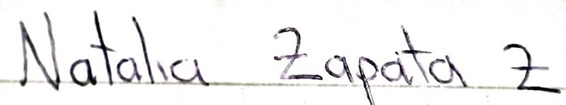 Natalia Zapata Z